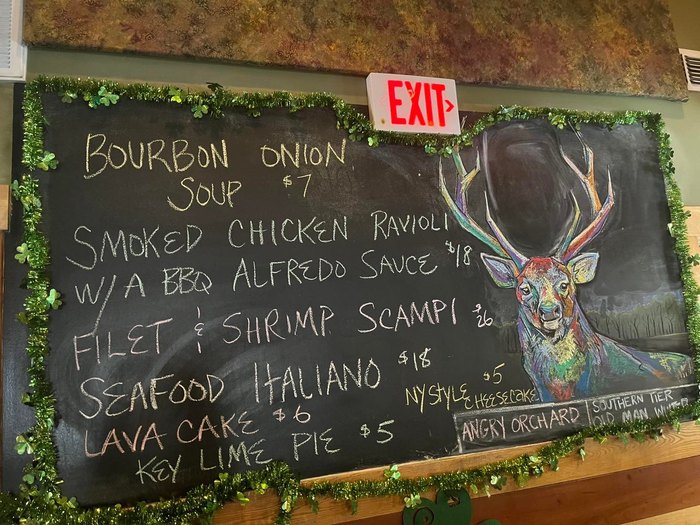 EXIT
BOURBON ONION
SOUP $7
SMOKED CHICKEN RAVIOLI
W/A BBQ ALFREDO SAUCE $18
FILET & SHRIMP SCAMPI $26
SEAFOOD ITALIANO $18
NY STYLE $5
CHEESECAKE
LAVA CAKE $6
KEY LIME PIE $5
ANGRY ORCHARD
SOUTHERN TIER
OLD MAN WINTER